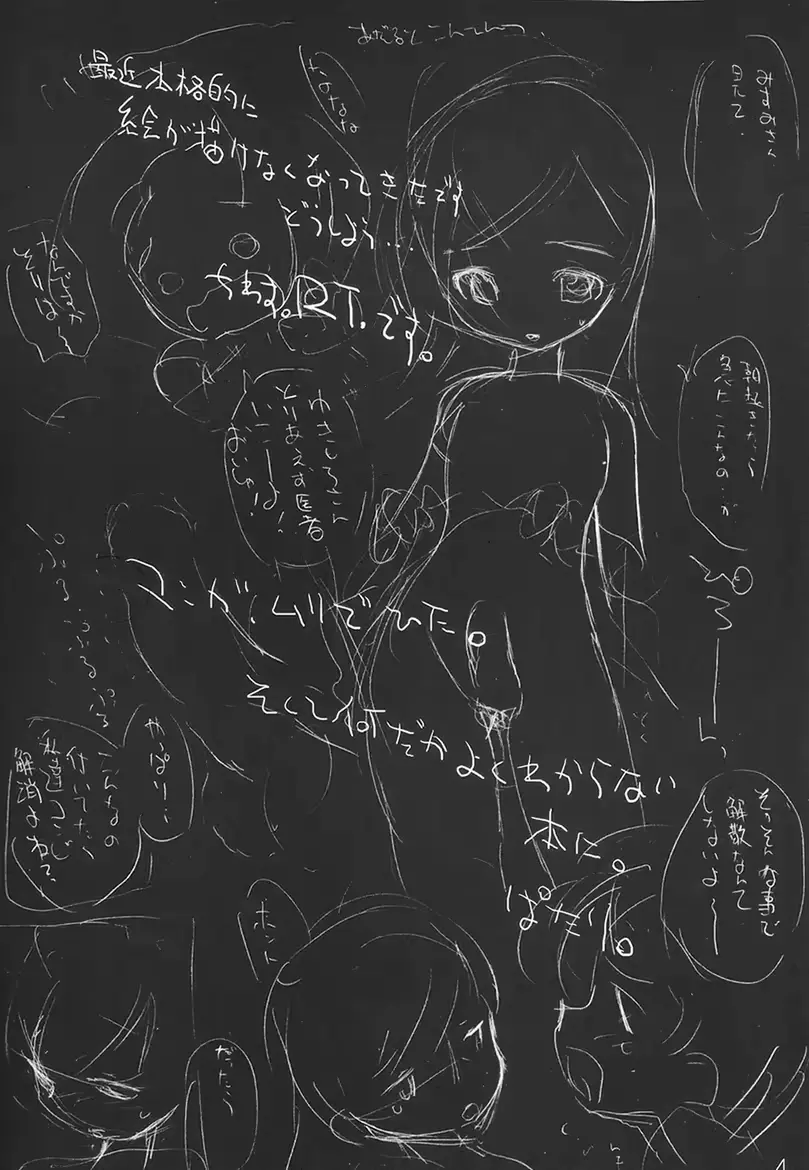 あだるとこんてんつ..
最近本格的に
絵が描けなくなってきたです
どうしよう…
ちわす。RT.です。
みすみさん
見て.
なんですか
それは〜
朝起きたら
急にこんなの…が
ゆきしろさん
とりあえず医者
いこーよ!
おいしゃ!
ぷるぷるぷる
マンガ.ムリでひた。
そして何だかよくわからない
本に。
ぱたり。
やっぱり…
こんなの
付いてたら
私達コンビ
解消よね?、
そ、そんな事で
解散なんて
しないよ〜
ホント
だったら